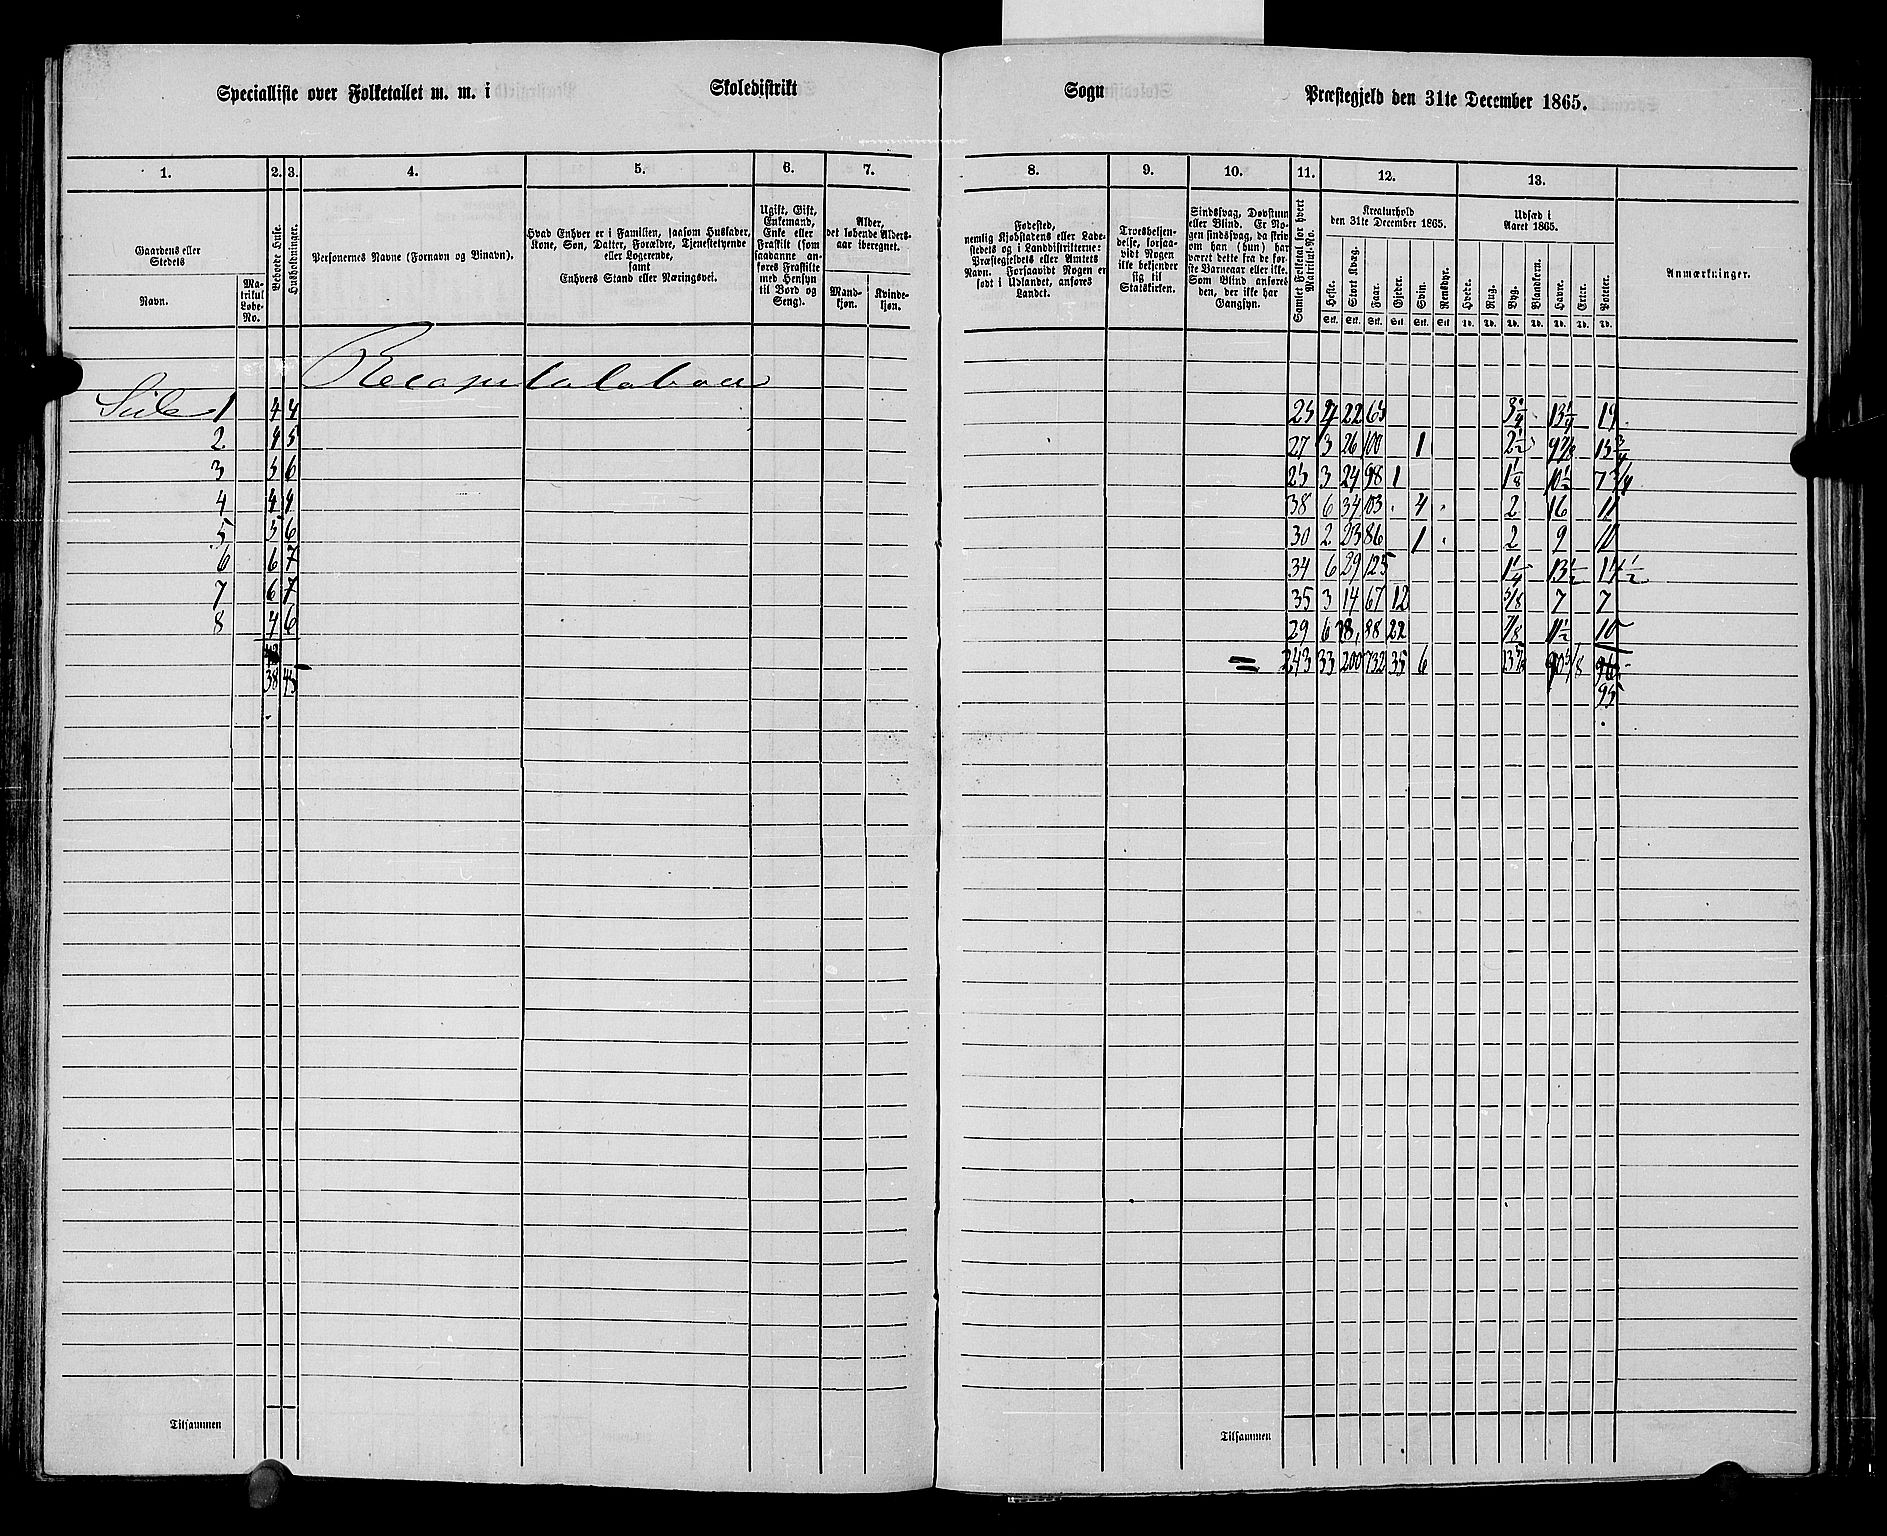 Specialliste over Folketallet m. m. i Skoledistrikt Sogn Præstegjeld den 31te December 1865.
1. 2. 3. 4. 5. 6. 7. 8. 9. 10. 11. 12. 13.
Gaardens eller
Stedets
Navn.
Ma-
trikul
Løbe-
No.
Beboede Huse.
Husholdninger.
Personernes Navne (Fornavn og Binavn).
Hvad Enhver er i Familien, saasom Husfader,
Kone, Søn, Datter, Forældre, Tjenestetyende
eller Logerende,
samt
Enhvers Stand eller Næringsvei.
Ugift, Gift,
Enkemand,
Enke eller
Fraskilt (som
saadanne an-
føres Fraskilte
med Hensyn
til Bord og
Seng).
Alder,
det løbende Alders-
aar iberegnet.
Mand-
kjøn.
Kvinde-
kjøn.
Fødested,
nemlig Kjøbstadens eller Lade-
stedets og i Landdistrikterne:
Præstegjeldets eller Amtets
Navn. Forsaavidt Nogen er
født i Udlandet, anføres
Landet.
Troesbekjen-
delse, forsaa-
vidt Nogen
ikke bekjender
sig til
Statskirken.
Sindssvag, Døvstum
eller Blind. Er No-
gen sindssvag, da skriv
om han (hun) har
været dette fra de før-
ste Barneaar eller ikke.
Som Blind anføres
den, der ikke har
Gangsyn.
Samlet Folketal for hvert
Matrikul-No.
Kreaturhold
den 31te December 1865.
Heste. Stort Kvæg. Faar. Gjeder. Svin. Rensdyr.
Stk. Stk. Stk. Stk. Stk. Stk.
Udsæd i
Aaret 1865.
Hvede. Rug. Byg. Blandkorn. Havre. Erter. Poteter.
Td. Td. Td. Td. Td. Td. Td.
Anmærkninger.
Recapitulation
Side 1 4 4 25 4 22 65 3 3/4 13 1/4 19
2 4 5 27 3 26 100 1 2 1/2 9 7/8 15 3/4
3 5 6 25 3 24 98 1 1 1/8 10 1/2 7 3/4
4 4 4 38 6 34 103 4 2 16 11
5 5 6 30 2 23 86 1 2 9 10
6 6 7 34 6 29 125 1 1/4 13 1/2 14 1/2
7 6 7 35 3 14 67 12 5/8 7 7
8 4 6 29 6 28 88 22 7/8 11 1/2 10
= 243 33 200 732 35 6 90 5/8
38 45 95
Tilsammen Tilsammen